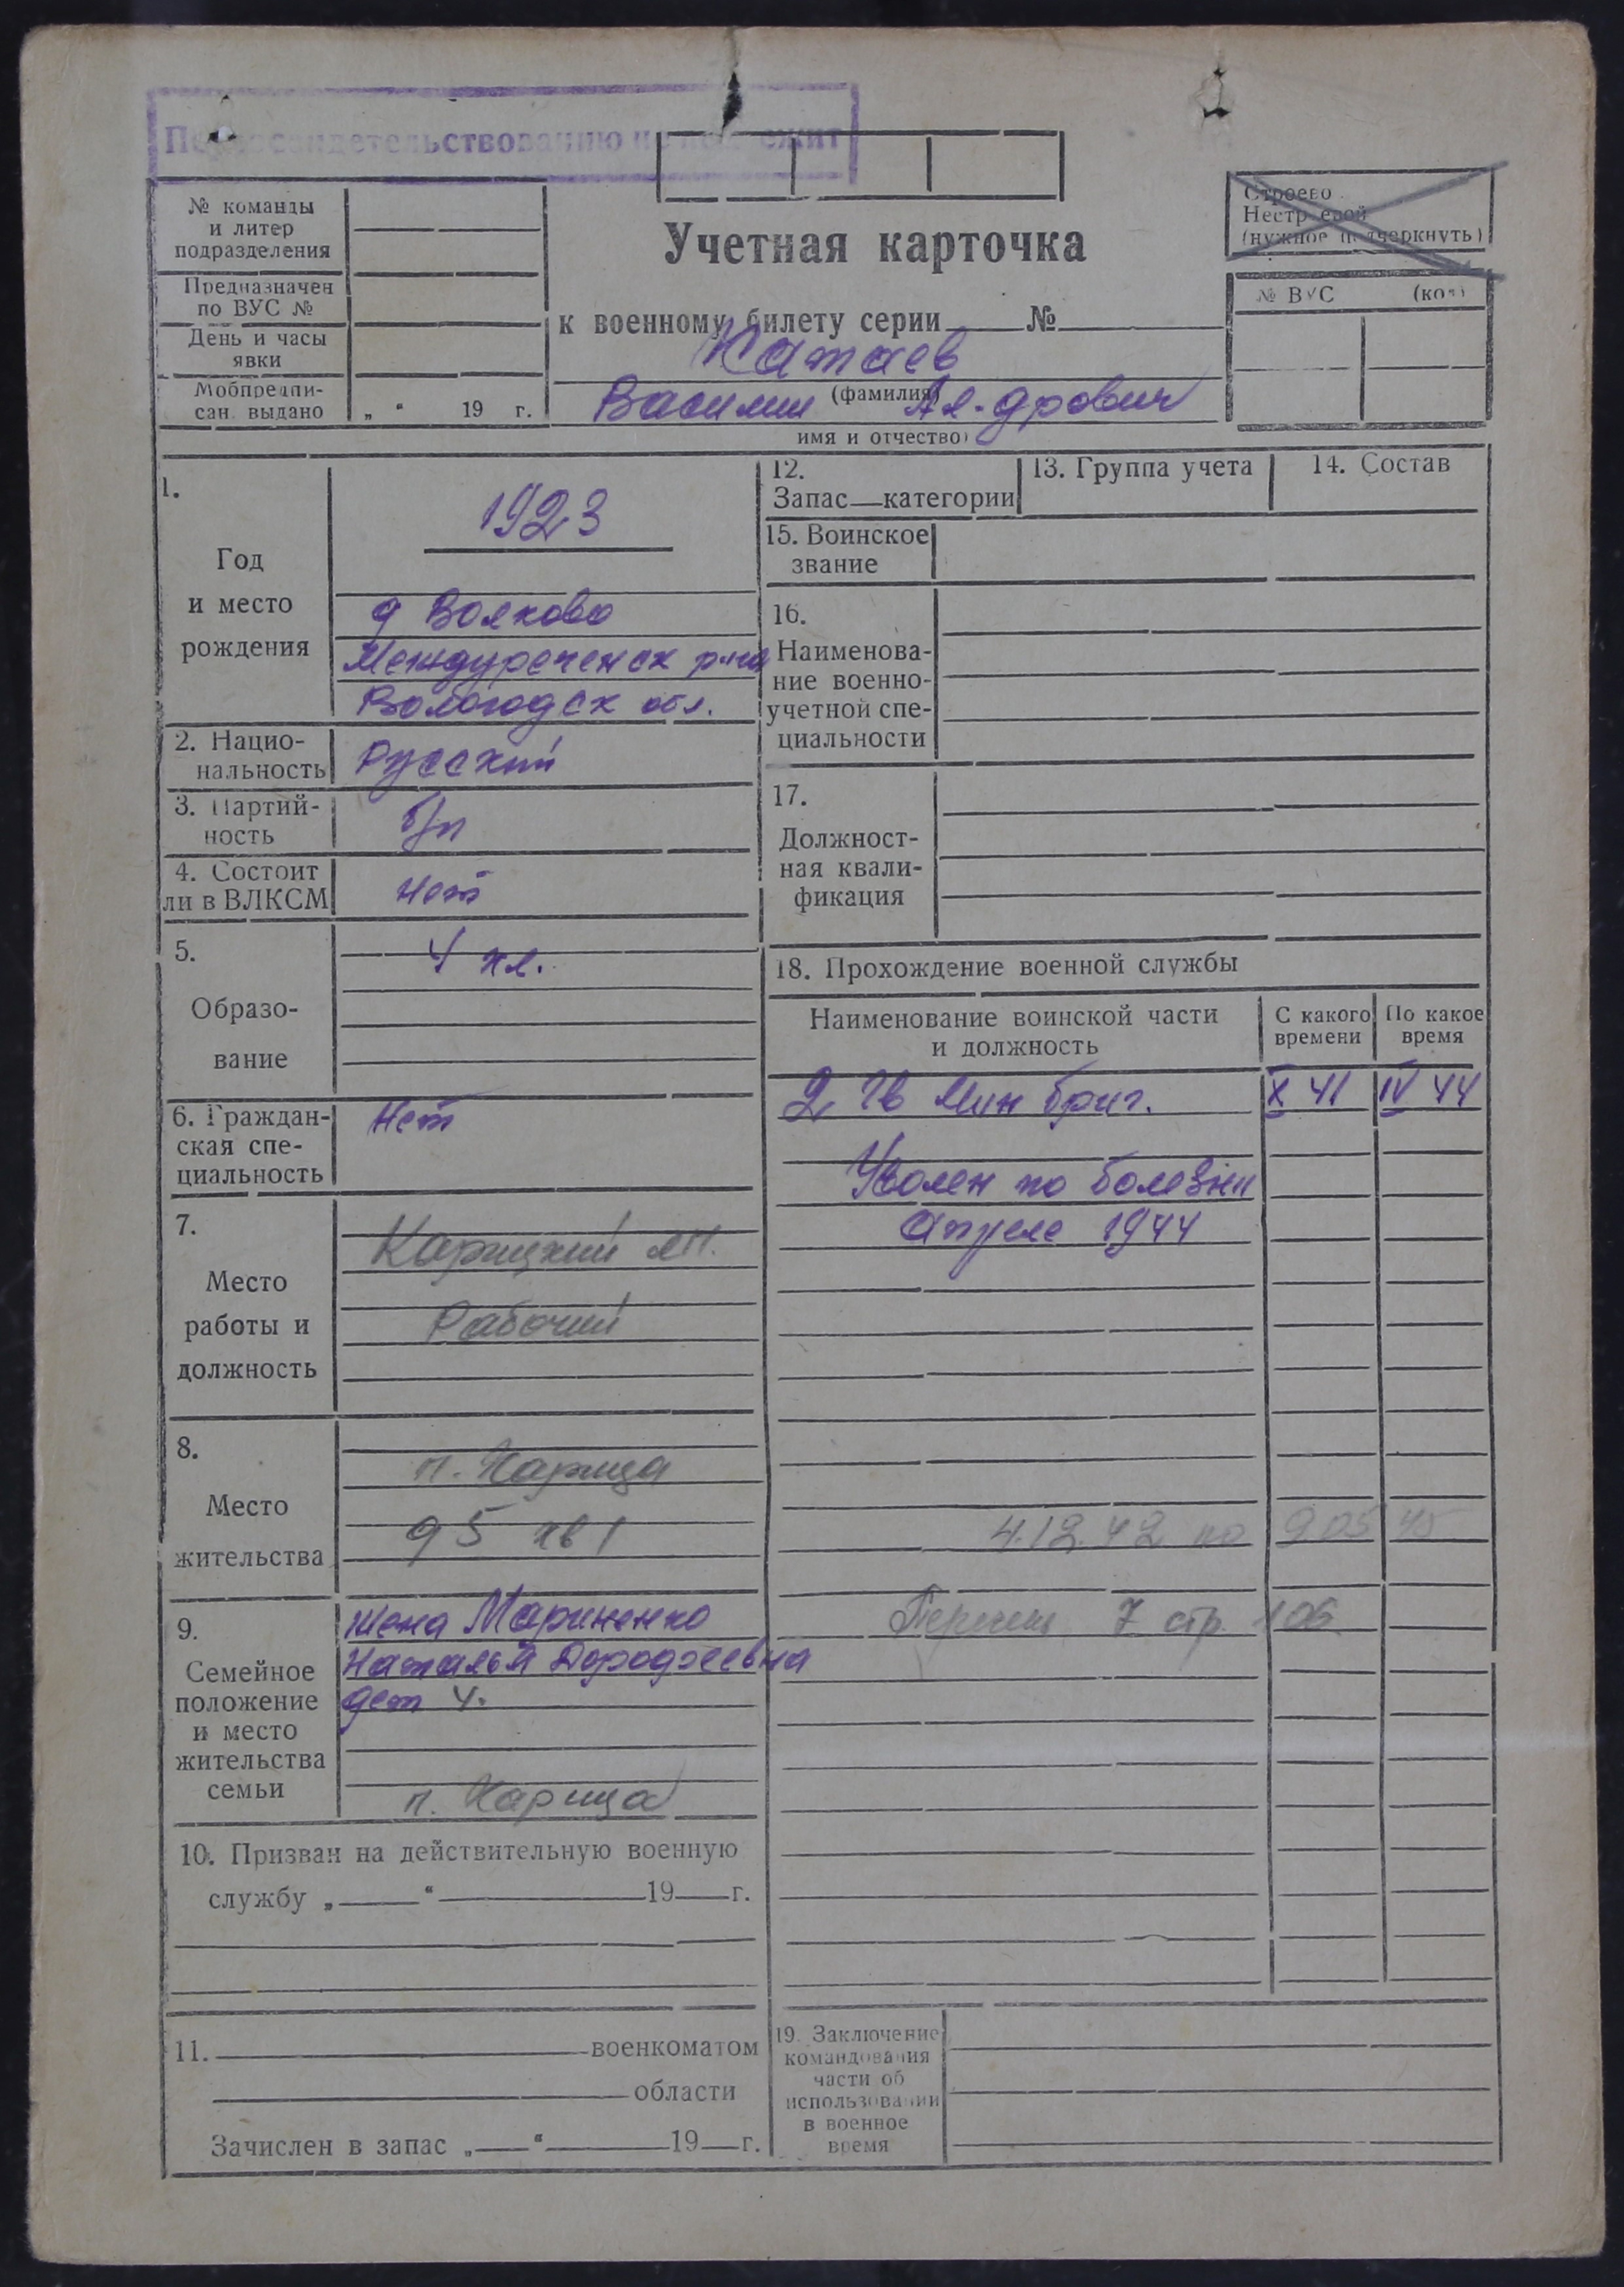 Переосвидетельствованию не подлежит
№ команды
и литер
подразделения
Предназначен
по ВУС №
День и часы
явки
Мобпредпи-
сан. выдано „ “ 19 г.
Учетная карточка
к военному билету серии №
Катаев
(фамилия)
Василий Ал-дрович
имя и отчество)
Строево
Нестроевой
(нужное подчеркнуть)
№ ВУС (код)
1.
Год
и место
рождения
1923
д Волково
Междуреченск р-на
Вологодск обл.
2. Нацио-
нальность
Русский
3. Партий-
ность
б/п
4. Состоит
ли в ВЛКСМ
нет
5.
Образо-
вание
4 кл.
6. Граждан-
ская спе-
циальность
Нет
7.
Место
работы и
должность
Карицкий лп.
Рабочий
8.
Место
жительства
п. Карица
д 5 кв 1
9.
Семейное
положение
и место
жительства
семьи
жена Мариненко
Наталья Дорофеевна
дет 4.
п. Карица
10. Призван на действительную военную
службу „ “ 19 г.
11. военкоматом
области
Зачислен в запас „ “ 19 г.
12.
Запас—категории
13. Группа учета
14. Состав
15. Воинское
звание
16.
Наименова-
ние военно-
учетной спе-
циальности
17.
Должност-
ная квали-
фикация
18. Прохождение военной службы
Наименование воинской части
и должность
С какого
времени
По какое
время
2 Гв Мин бриг. X 41 IV 44
Уволен по болезни
Апреле 1944
4.12.42 по 9 05 45
7 стр. 106
19. Заключение
командования
части об
использовании
в военное
время